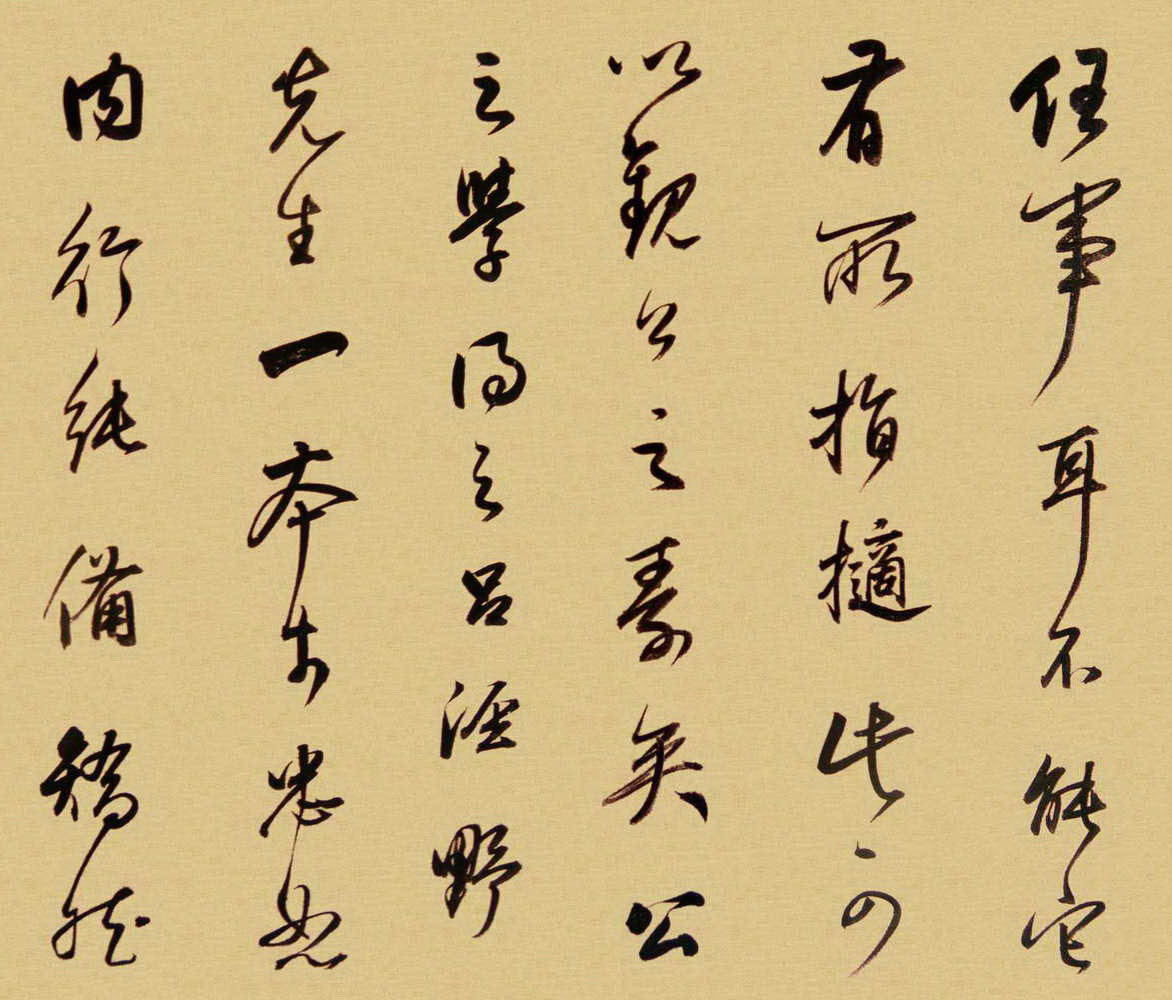 任事耳不能它
有所指擿此可
以觀公之素矣公
之學得之呂涇野
先生一本於忠恕
内行純備矯然